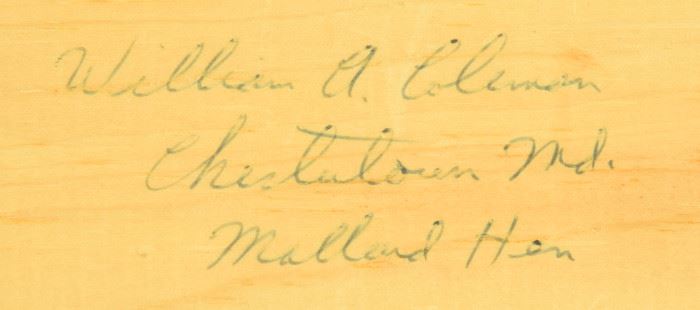 William A. Coleman
Chestertown Md.
Mallard Hen